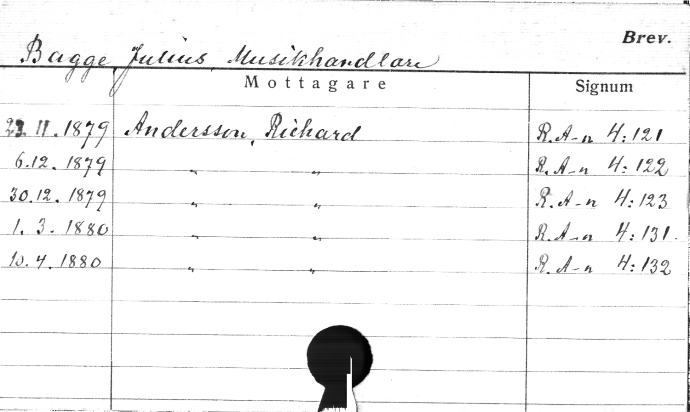 Brev.
Bagge, Julius, Musikhandlare
Mottagare Signum
23.11.1879 Andersson, Richard R.A-n 4:121
6.12.1879 " " R.A-n 4:122
30.12.1879 " " R.A-n 4:123
1.3.1880 " " R.A-n 4:131.
10.4.1880 " " R.A-n 4:132